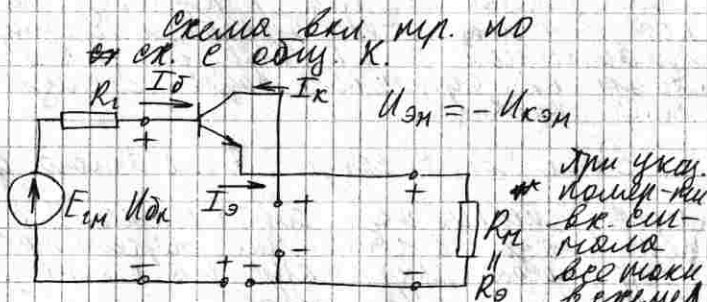 Схема вкл. тр. по
сх. с общ. К.
Rг Iб Iк Uэн = -Uкэн
+
Eгм Uбк Iэ + + Rн = Rэ
- + - - -
При указ.
поляр-ти
вх. сиг-
нала
все токи
в схеме